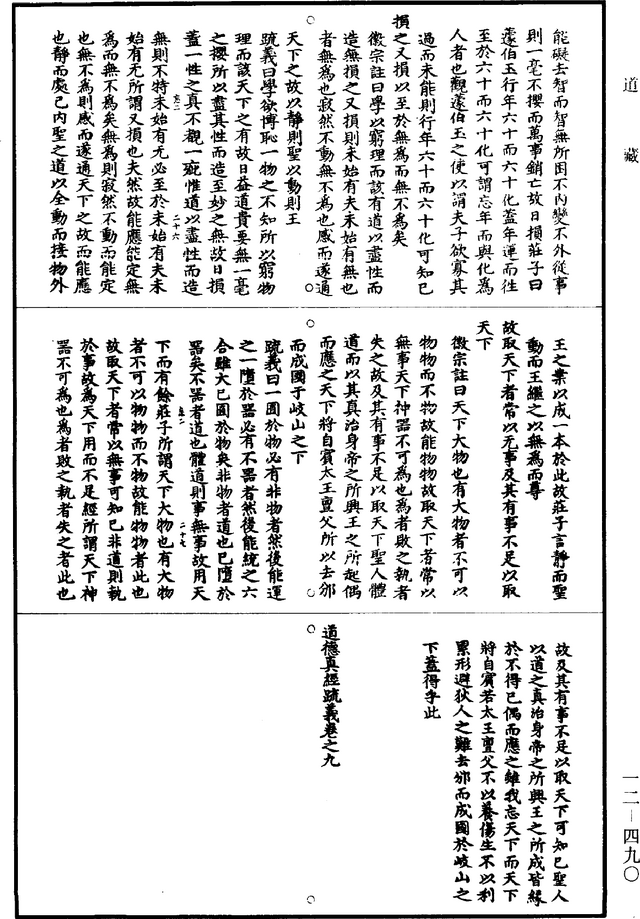 道藏
能礙去智而智無所困不內變不外從事
則一毫不攖而萬事銷亡故日損莊子曰
蘧伯玉行年六十而六十化蓋年運而往
至於六十而六十化可謂忘年而與化為
人者也觀蘧伯玉之使以謂夫子欲寡其
過而未能則行年六十而六十化可知已
損之又損以至於無為而無不為矣
徽宗註曰學以窮理而該有道以盡性而
造無損之又損則未始有夫未始有無也
者無為也寂然不動無不為也感而遂通
天下之故以靜則聖以動則王
疏義曰學欲博恥一物之不知所以窮物
理而該天下之有故日益道貴要無一毫
之攖所以盡其性而造至妙之無故日損
蓋一性之真不覩一疵惟道以盡性而造
無則不特未始有无必至於未始有夫未
始有无所謂又損也夫然故能應能定無
為而無不為矣無為則寂然不動而能定
也無不為則感而遂通天下之故而能應
也靜而處已內聖之道以全動而接物外
二十六
王之業以成一本於此故莊子言靜而聖
動而王繼之以無為而尊
故取天下者常以无事及其有事不足以取
天下
徽宗註曰天下大物也有大物者不可以
物物而不物故能物物故取天下者常以
無事天下神器不可為也為者敗之執者
失之故及其有事不足以取天下聖人體
道而以其真治身帝之所興王之所起偶
而應之天下將自賓太王亶父所以去邠
而成國于岐山之下
疏義曰一圓於物必有非物者然後能運
之一墮於器必有不器者然後能統之六
合雖大已圓於物矣非物者道也已墮於
器矣不器者道也體道則事無事故用天
下而有餘莊子所謂天下大物也有大物
者不可以物物而不物故能物物者此也
故取天下者常以無事可知已非道則執
於事故為天下用而不足經所謂天下神
器不可為也為者敗之執者失之者此也
二十七
故及其有事不足以取天下可知已聖人
以道之真治身帝之所興王之所成皆緣
於不得已偶而應之雖我忘天下而天下
將自賓若太王亶父不以養傷生不以利
累形避狄人之難去邠而成國於岐山之
下蓋得乎此
道德真經疏義卷之九
一二－四九〇